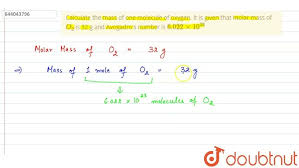 644043796
Calculate the mass of one molecule of oxygen. It is given that molar mass of
O₂ is 32 g and Avogadro's number is 6.022 × 10²³
Molar Mass of O₂ = 32 g
⇒ Mass of 1 mole of O₂ = 32 g
6.022 × 10²³ molecules of O₂
doubtnut